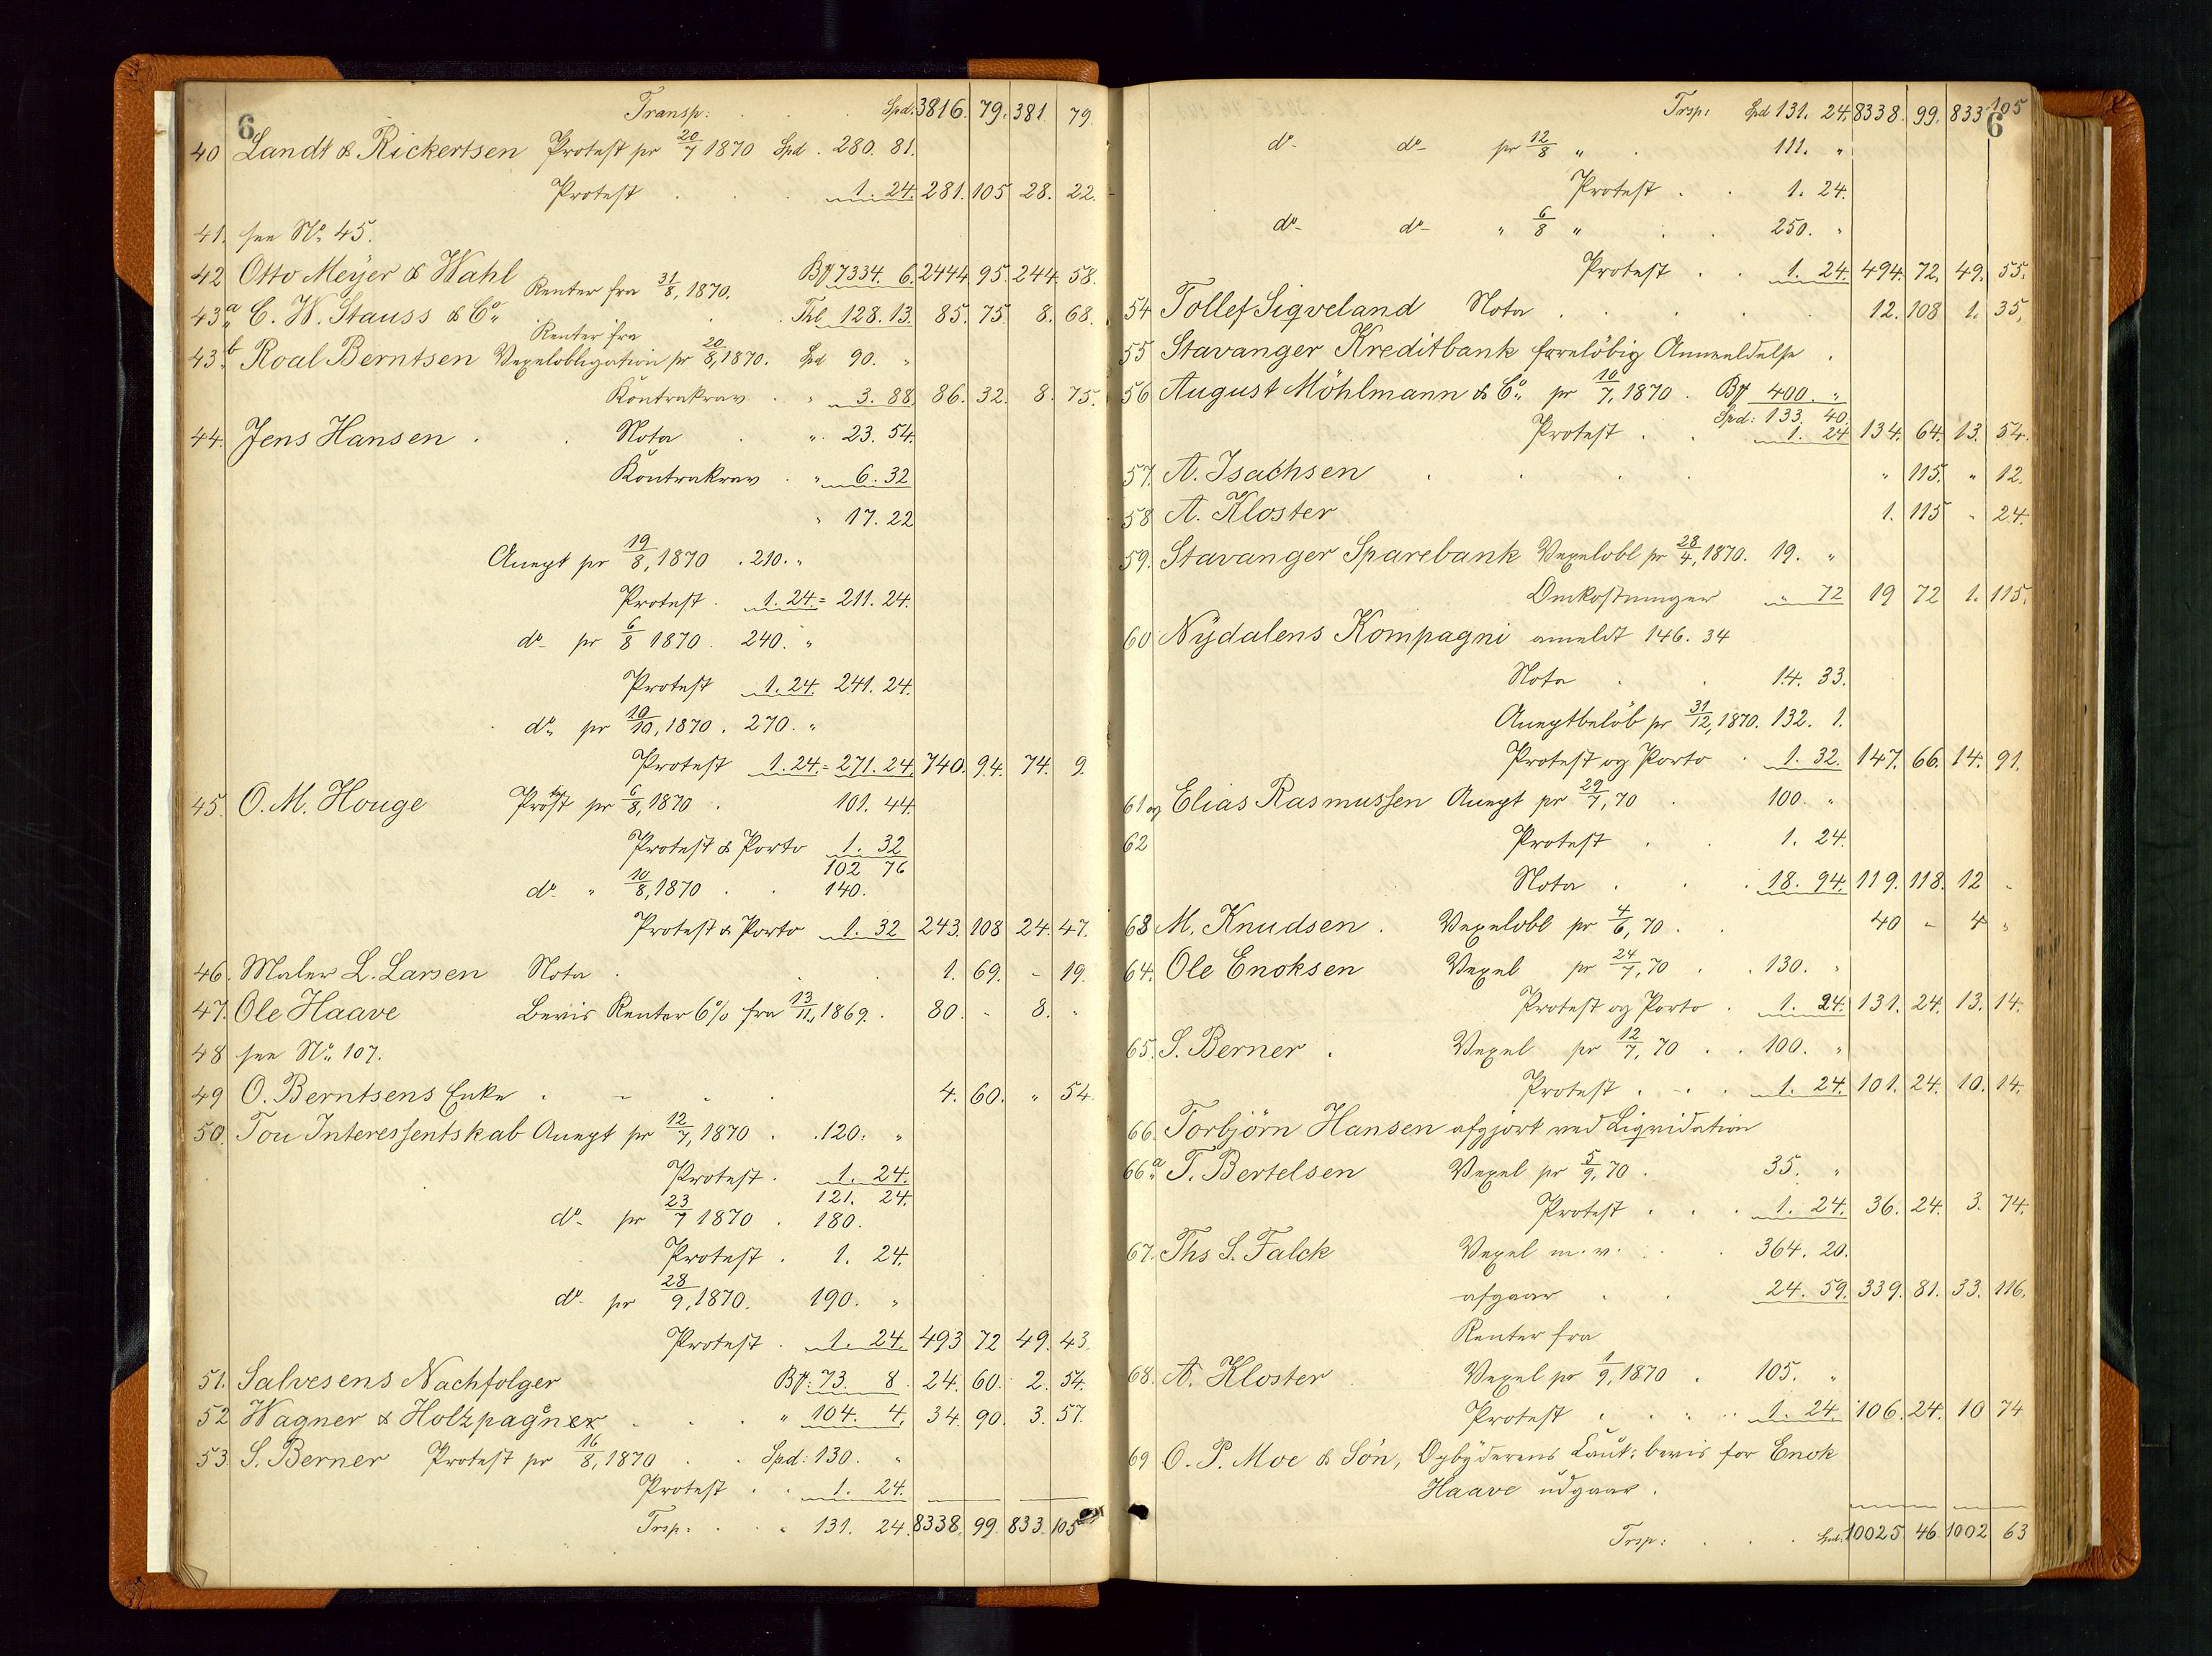 6
Transp: Spd. 3816. 79. 381. 79.
40 Landt & Rickertsen Protest pr 20/7 1870 Spd. 280. 81.
Protest 1. 24. 281. 105 28. 22.
41. see No. 45.
42 Otto Meÿer & Wahl Renter fra 31/8, 1870. 7334. 6. 2444. 95. 244. 58.
43a C. W. Stauss & Co. Thl 128. 13. 85. 75. 8. 68.
Renter fra
43b Roal Berntsen Vexelobligation pr 20/8, 1870. Spd 90. "
Kontrakrav 3. 88. 86. 32. 8. 75.
44. Jens Hansen Nota " 23. 54.
Kontrakrav " 6. 32
" 17. 22
Accept pr 19/8, 1870. 210. "
Protest. 1. 24. = 211. 24.
do pr 6/8 1870. 240. "
Protest 1. 24. 241. 24.
do pr 10/10, 1870. 270. "
Protest 1. 24. = 271. 24. 740. 94. 74. 9.
45. O. M. Houge pr 6/8, 1870. 101. 44.
Protest & Porto 1. 32
102 76
do " 10/8, 1870 140.
Protest & Porto 1. 32 243. 108 24. 47.
46. Maler L. Larsen Nota 1. 69. - 19.
47. Ole Haave Bevis Renter 6% fra 13/11, 1869. 80. - 8. "
48 see No. 107.
49 O. Berntsens Enke 4. 60. " 54
50. Tou Interessentskab Accept pr 12/7, 1870. 120. "
Protest. 1. 24.
121. 24.
do pr 23/7 1870. 180.
Protest. 1. 24.
do pr 28/9, 1870. 190. "
Protest. 1. 24. 493 72 49. 43.
51. Salvesens Nachfolger 73. 8 24. 60. 2. 54.
52 Wagner & Holzpagner " 104. 4. 34. 90. 3. 57.
53. S. Berner Protest pr 16/8, 1870 Spd: 130. "
Protest 1. 24.
Trsp: " 131. 24. 8338. 99. 833. 105
6
Trsp: Spd 131. 24. 8338. 99. 833. 105
do do pr 12/8 " 111. "
Protest 1. 24.
do do " 6/8 " 250. "
Protest 1. 24. 494. 72. 49. 55.
54 Tollef Siqveland Nota 12. 108 1. 35.
55 Stavanger Kreditbank foreløbig Anmeldelse
56 August Möhlmann & Co. pr 10/7, 1870. 400. "
Spd: 133. 40.
Protest 1. 24 134. 64. 13. 54.
57. A. Isachsen " 115. " 12.
58 A. Kloster 1. 115 " 24.
59. Stavanger Sparebank Vexelobl pr 28/4, 1870. 19. "
Omkostninger " 72 19 72 1. 115.
60 Nÿdalens Kompagni anmeldt 146. 34
Nota 14. 33.
Acceptbelöb pr 31/12, 1870. 132. 1.
Protest og Porto 1. 32. 147. 66. 14. 91.
61 og Elias Rasmussen Accept pr 29/7, 70 100. "
62 Protest 1. 24.
Nota 18. 94. 119. 118. 12 -
63 M. Knudsen. Vexelobl pr 4/6, 70. 40 - 4 "
64. Ole Enoksen Vexel pr 24/7, 70 130. "
Protest og Porto. 1. 24. 131. 24. 13. 14.
65. S. Berner. Vexel pr 12/7, 70 100. "
Protest. 1. 24. 101. 24. 10. 14.
66. Torbjörn Hansen afgjort ved Liqvidation
66a T. Bertelsen Vexel pr 5/9, 70. 35. "
Protest 1. 24. 36. 24. 3. 74.
67. Ths S. Falck Vexel m. v. 364. 20.
afgaar 24. 59. 339. 81. 33. 116.
Renter fra
68. A. Kloster Vexel pr 1/9, 1870. 105. "
Protest 1. 24. 106. 24. 10 74
69 O. P. Moe & Sön, Opbÿderens Caut: bevis for Enok
Haave udgaar.
Trsp: Spd. 10025 46 1002 63